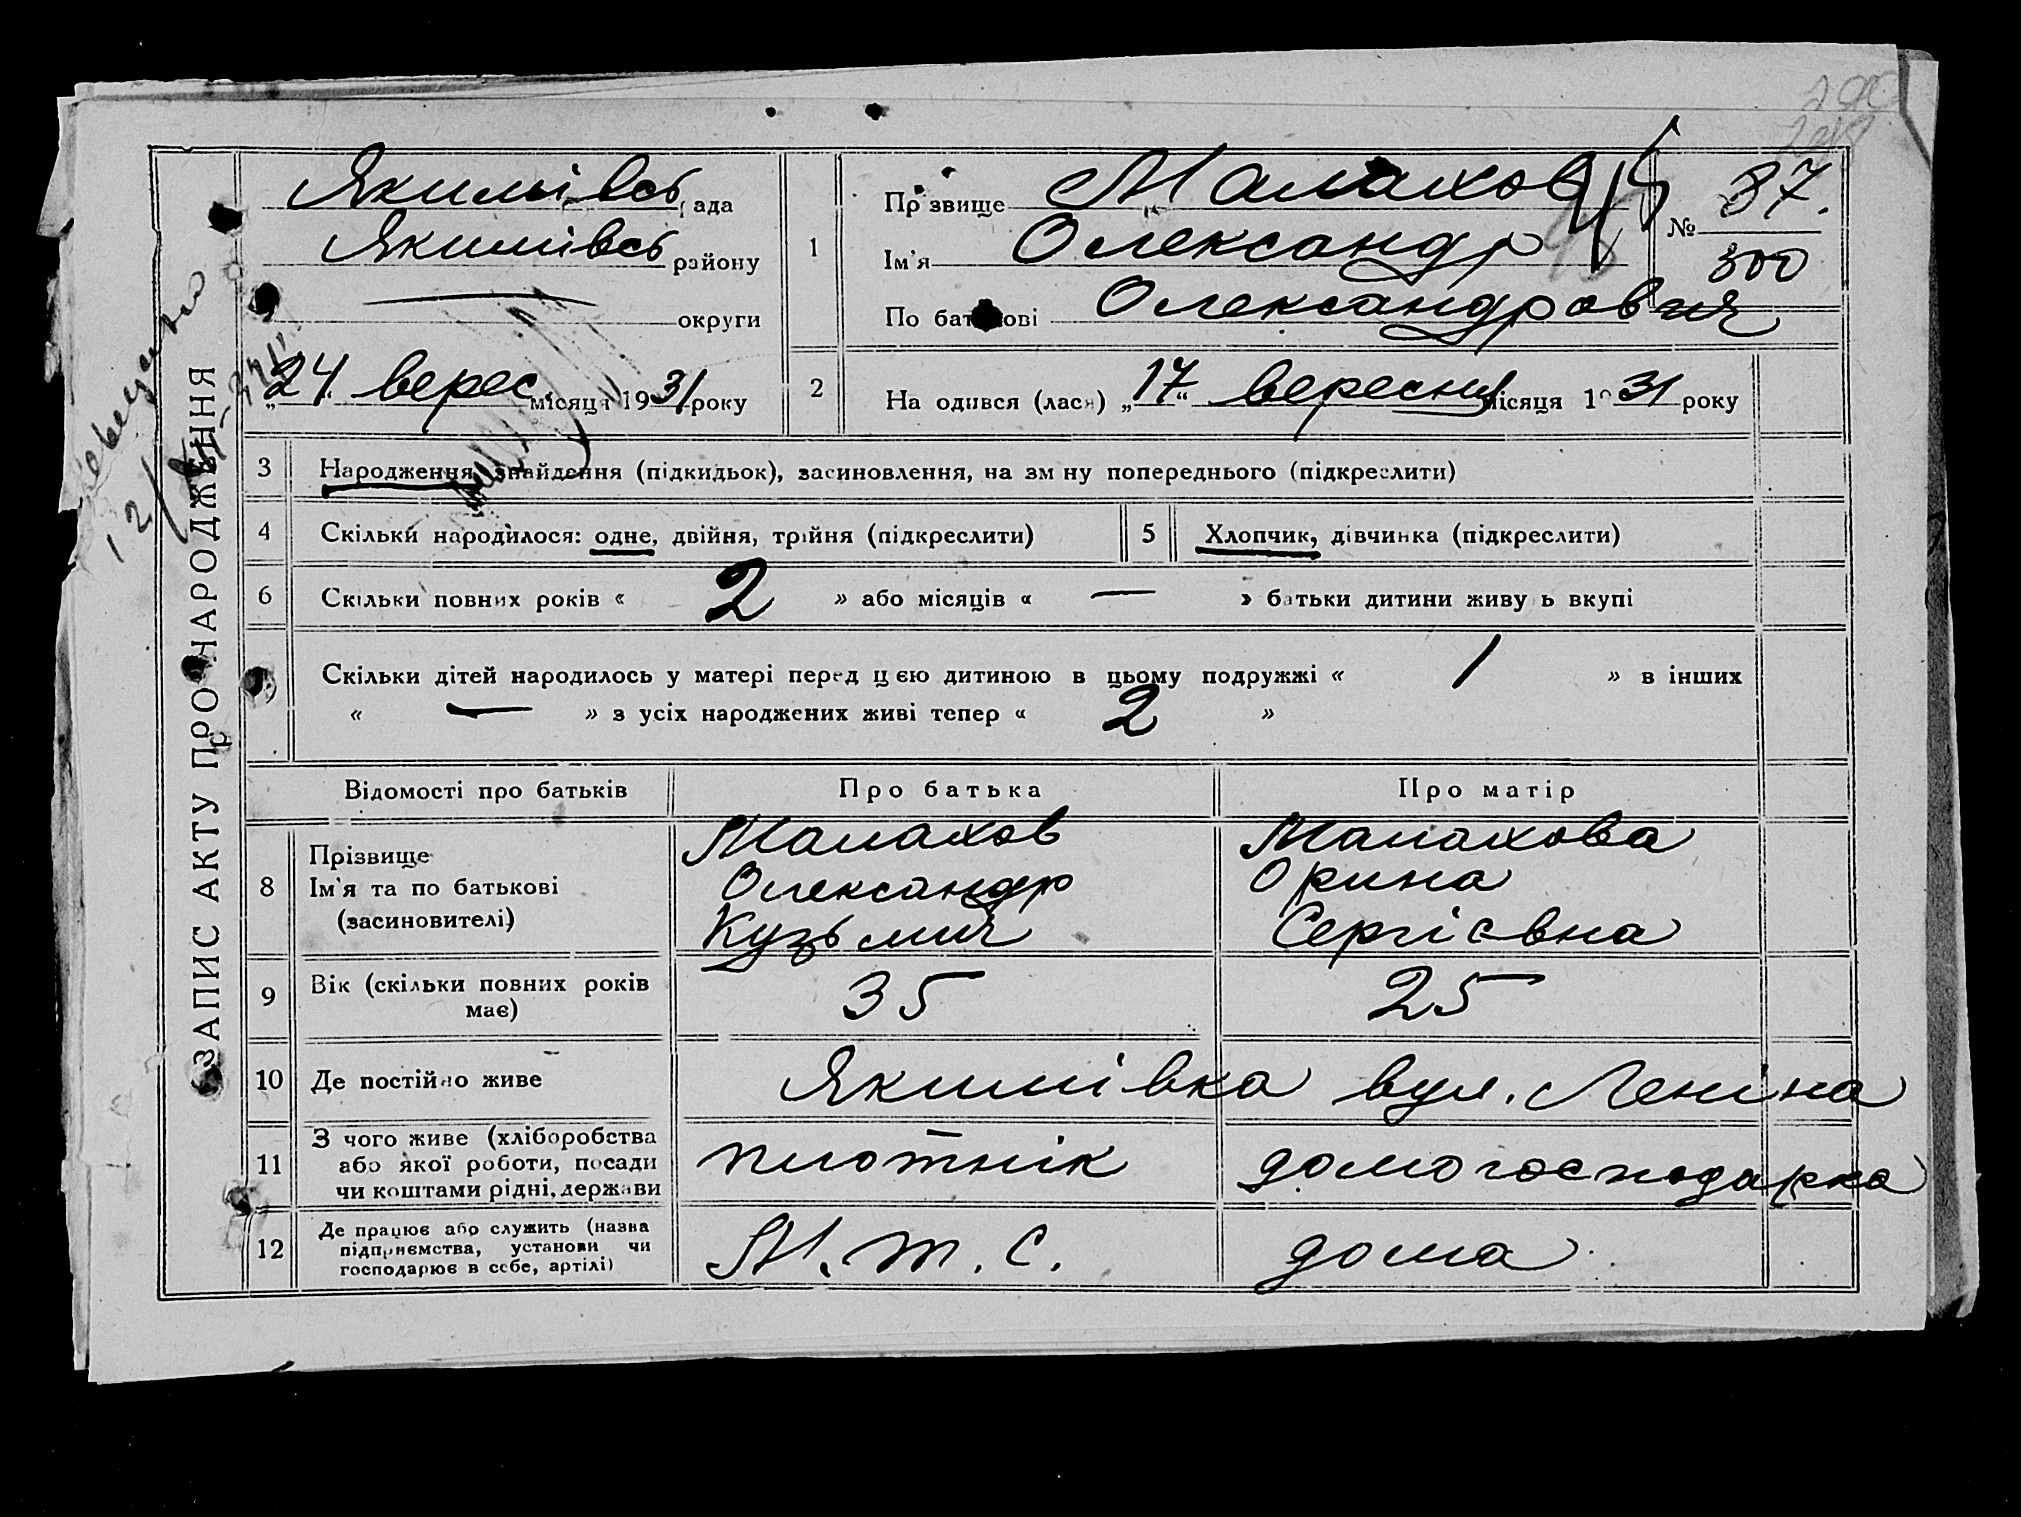 ЗАПИС АКТУ ПРО НАРОДЖЕННЯ
Якимівсь рада
Якимівсь району
округи
„24 верес місяця 1931 року
1 Прізвище Малахов
Ім'я Олександр
По батькові Олександрович
№ 87.
300
2 На одився (лась) „17“ вересня місяця 1931 року
3 Народження, знайдення (підкидьок), засиновлення, на зм ну попереднього (підкреслити)
4 Скільки народилося: одне, двійня, трійня (підкреслити)
5 Хлопчик, дівчинка (підкреслити)
6 Скільки повних років « 2 » або місяців « — » батьки дитини живу ь вкупі
Скільки дітей народилось у матері перед цією дитиною в цьому подружжі « 1 » в інших
« — » з усіх народжених живі тепер « 2 »
Відомості про батьків Про батька Про матір
8 Прізвище Малахов Малахова
Ім'я та по батькові Олександр Орина
(засиновителі) Кузьмич Сергієвна
9 Вік (скільки повних років має) 35 25
10 Де постійно живе Якимівка вул. Леніна
11 З чого живе (хліборобства
або якої роботи, посади
чи коштами рідні, держави плотнік домогосподарка
12 Де працює або служить (назва
підприємства, установи чи
господарює в себе, артілі) М.Т.С. дома